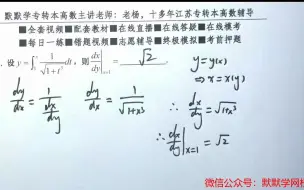 默默学专转本高数主讲老师：老杨，十多年江苏专转本高数辅导
■全套视频■配套教材■在线直播■在线答疑■在线模考
■每日一练■错题视频■志愿辅导■终极模拟■考前押题
设 y = ∫₀ˣ 1/√(1+t³) dt，则 dx/dy|ₓ₌₁ = √2
y = y(x)
⇒ x = x(y)
dy/dx = 1/(dx/dy)
dy/dx = 1/√(1+x³)
∴ dx/dy = √(1+x³)
∴ dx/dy|x=1 = √2
微信公众号：默默学网校